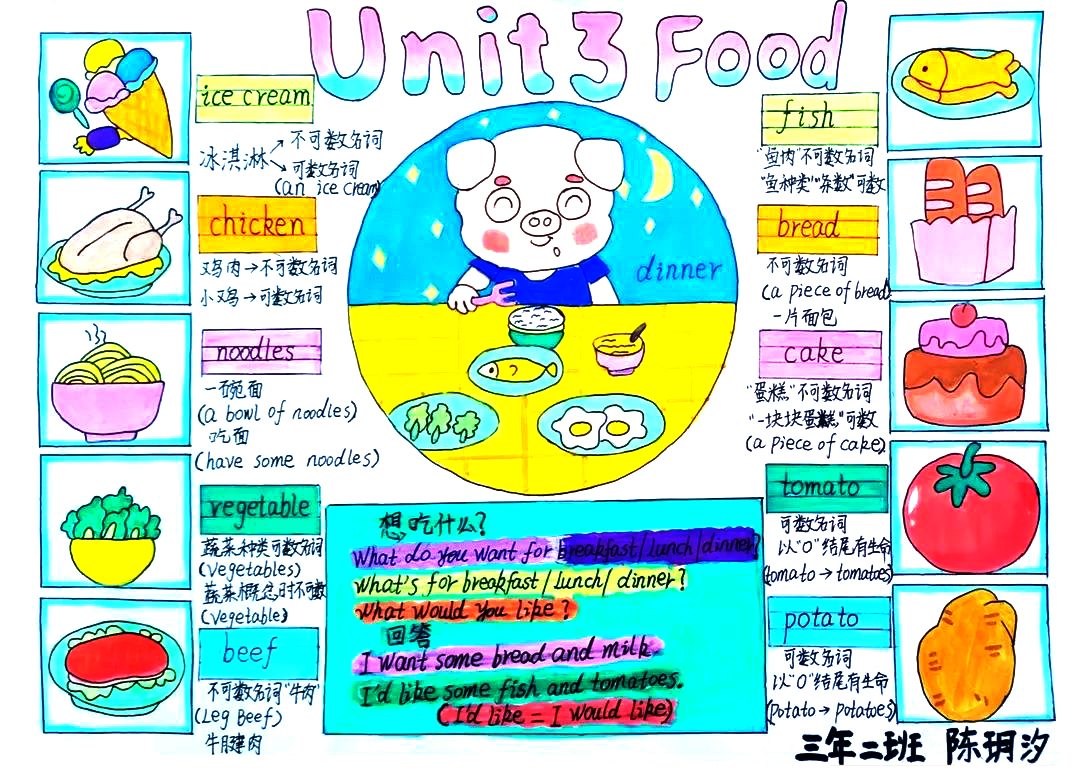 Unit 3 Food
ice cream
冰淇淋
不可数名词
可数名词
(an ice cream)
chicken
鸡肉→不可数名词
小鸡→可数名词
noodles
一碗面
(a bowl of noodles)
吃面
(have some noodles)
vegetable
蔬菜种类可数名词
(vegetables)
蔬菜概念时不可数
(vegetable)
beef
不可数名词"牛肉"
(Leg Beef)
牛腱肉
dinner
想吃什么?
What do you want for breakfast/lunch/dinner?
What's for breakfast/lunch/dinner?
What would you like?
回答
I want some bread and milk.
I'd like some fish and tomatoes.
(I'd like = I would like)
fish
"鱼肉"不可数名词
"鱼种类""条数"可数
bread
不可数名词
(a piece of bread)
一片面包
cake
"蛋糕"不可数名词
"一块块蛋糕"可数
(a piece of cake)
tomato
可数名词
以"O"结尾有生命
(tomato → tomatoes)
potato
可数名词
以"O"结尾有生命
(potato → potatoes)
三年二班 陈玥汐